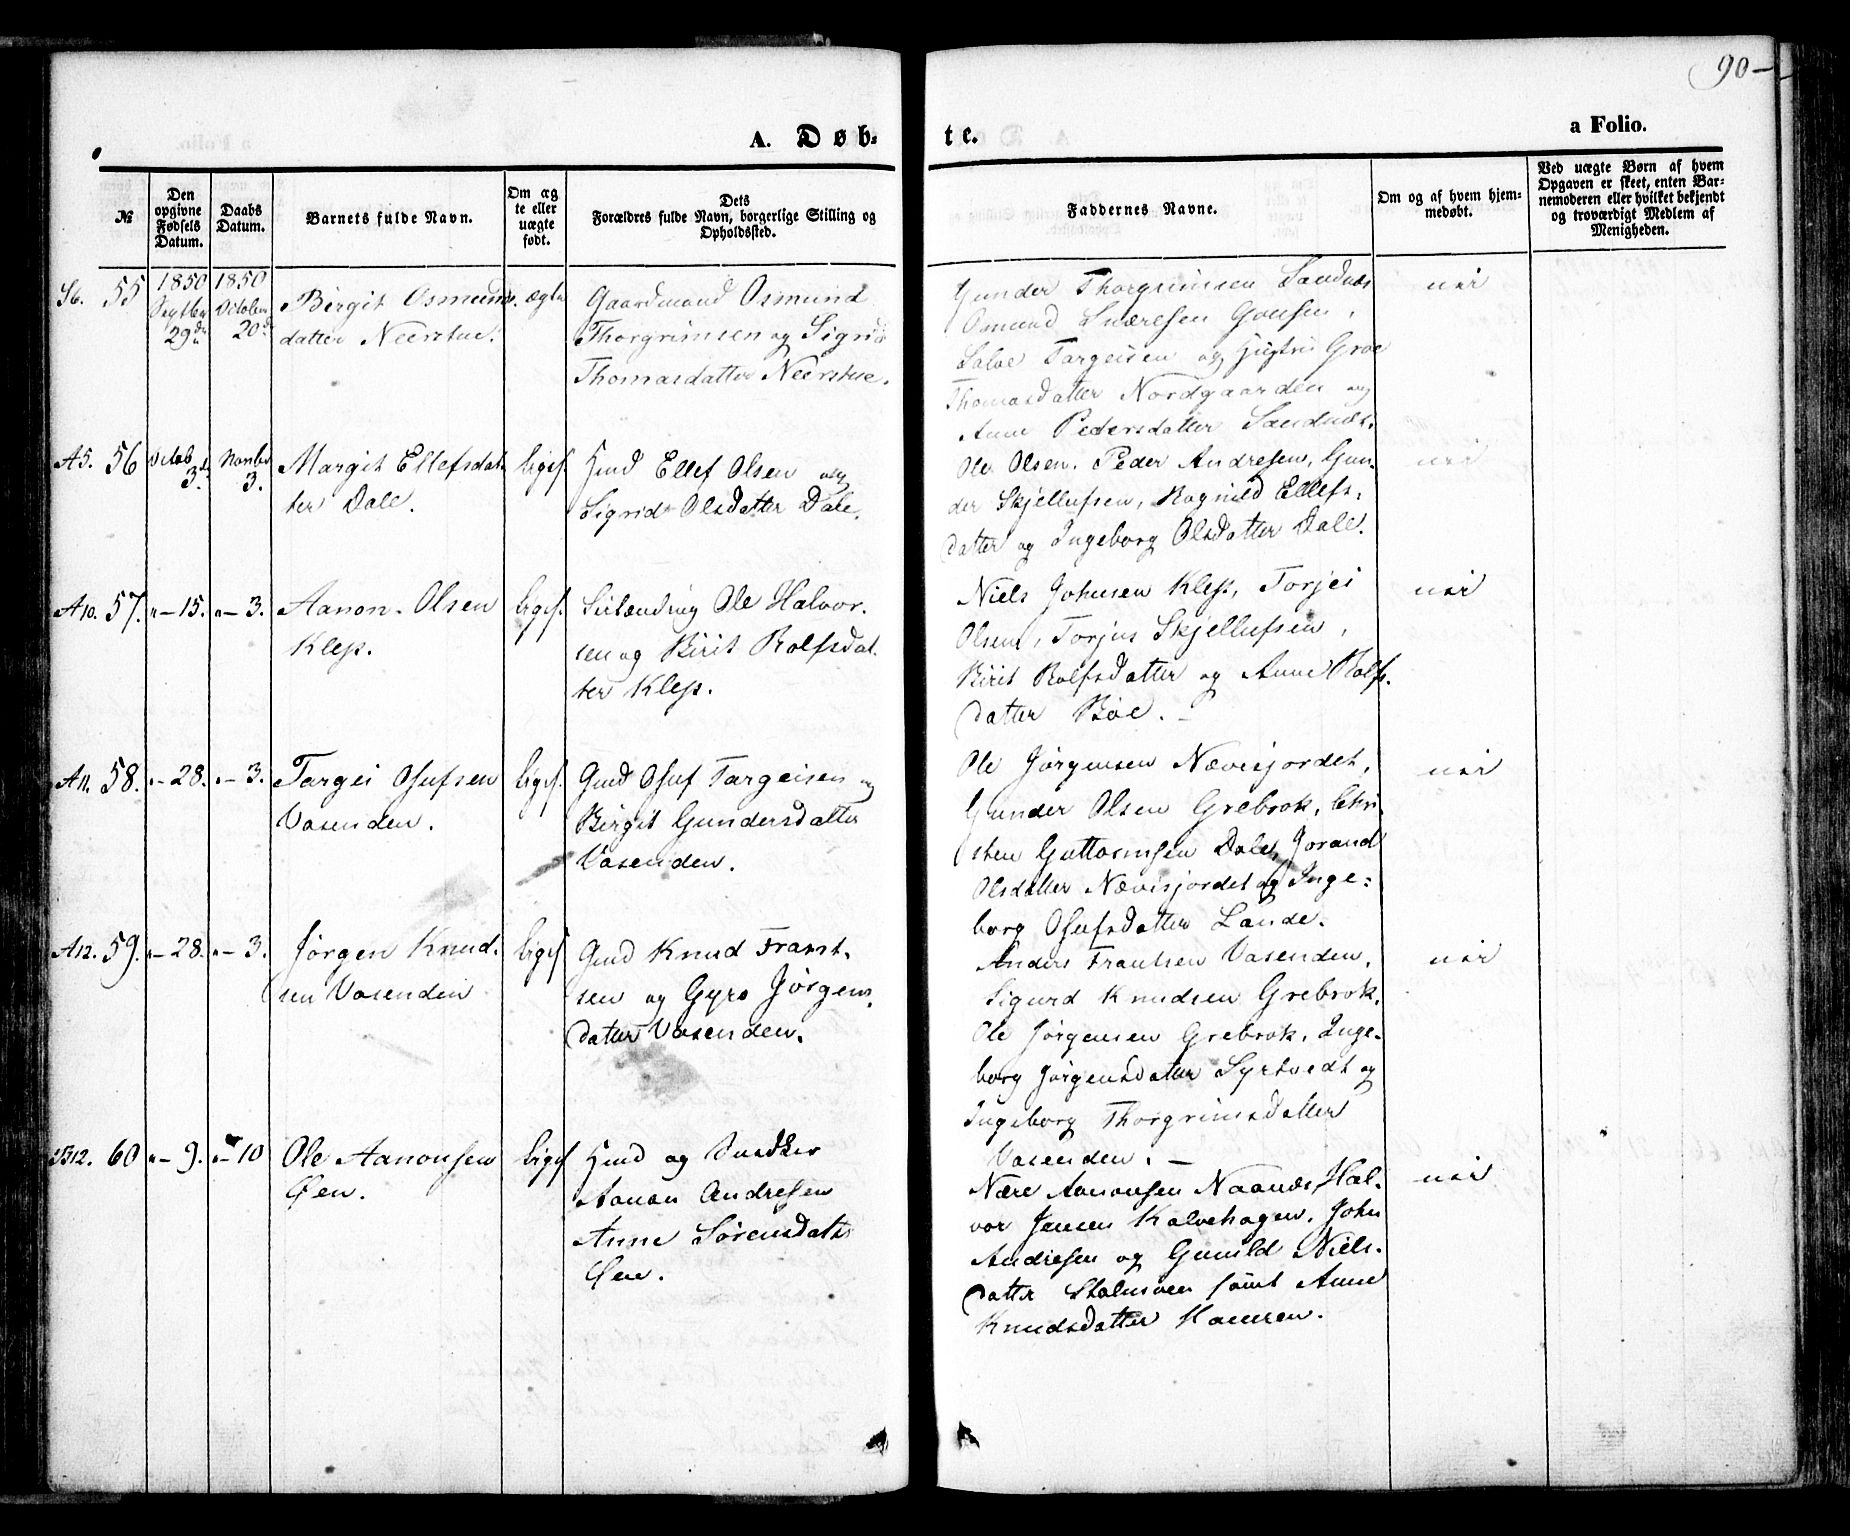 90
A. Døb-
te.
a Folio.
№
Den opgivne Fødsels Datum.
Daabs Datum.
Barnets fulde Navn.
Om ægte eller uægte født.
Dets Forældres fulde Navn, borgerlige Stilling og Opholdssted.
Faddernes Navne.
Om og af hvem hjemmedøbt.
Ved uægte Børn af hvem Opgaven er skeet, enten Barnemoderen eller hvilket bekjendt og troværdigt Medlem af Menigheden.
55
1850
Septber
29de
1850
October
20de
Birgit Osmunds.
datter Neerstue.
ægte
Gaardmand Osmund
Thorgrimsen og Sigrid
Thomasdatter Neerstue.
Gunder Thorgrimsen Sandnæs
Osmund
Salve Targeisen og Groe
Thomasdatter Nordgaarden og
Anne Pedersdatter Sandnæs.
nei
A5. 56
Octob
3de
Novber
3.
Margit Ellefsdat
ter Dale.
ligel.
Hmd Ellef Olsen og
Sigrid Olsdatter Dale.
Ole Olsen, Peder Andresen, Gun-
der Skjellufsen, Ragnild Ellefs.
datter og Ingeborg Olsdatter Dale.
nei
A10. 57.
"— 15.
"— 3.
Aanon Olsen
Klep.
ligel.
Ole Halvor.
sen og Birit Rolfsdat.
ter Klep.
Niels Johnsen Klep, Torjei
Olsen, Torjus Skjellufsen,
Birit Rolfsdatter og Anne Rolfs.
datter Bøe. —
nei
A11. 58.
"— 28.
"— 3.
Targei Osufsen
Vasenden.
ligel.
Gmd Osuf Targeisen og
Birgit Gundersdatter
Vasenden.
Ole Jørgensen Nævisjordet,
Gunder Olsen Grebrok, Chri-
sten Guttormsen Dale, Jorand
Olsdatter Nævisjordet og Inge-
borg Osufsdatter Lande.
nei
A12. 59.
"— 28.
"— 3.
Jørgen Knud.
sen Vasenden
ligel.
Gmd Knud Frant.
sen og Gyro Jørgens.
datter Vasenden.
Anders Frantsen Vasenden,
Sigurd Knudsen Grebrok,
Ole Jørgensen Grebrok, Inge-
borg Jørgensdatter Syrtvedt og
Ingeborg Thorgrimsdatter
Vasenden. —
nei
B12. 60
"— 9.
"— 10
Ole Aanonsen
Øen.
ligel
Hmd og
Aanon Andresen
Anne Sørensdatr
Øen.
Nære Aanonsen Naanæs, Hal.
vor Jensen Kalvehagen, John
Andresen og Gunild Niels.
datter samt Anne
Knudsdatter
nei